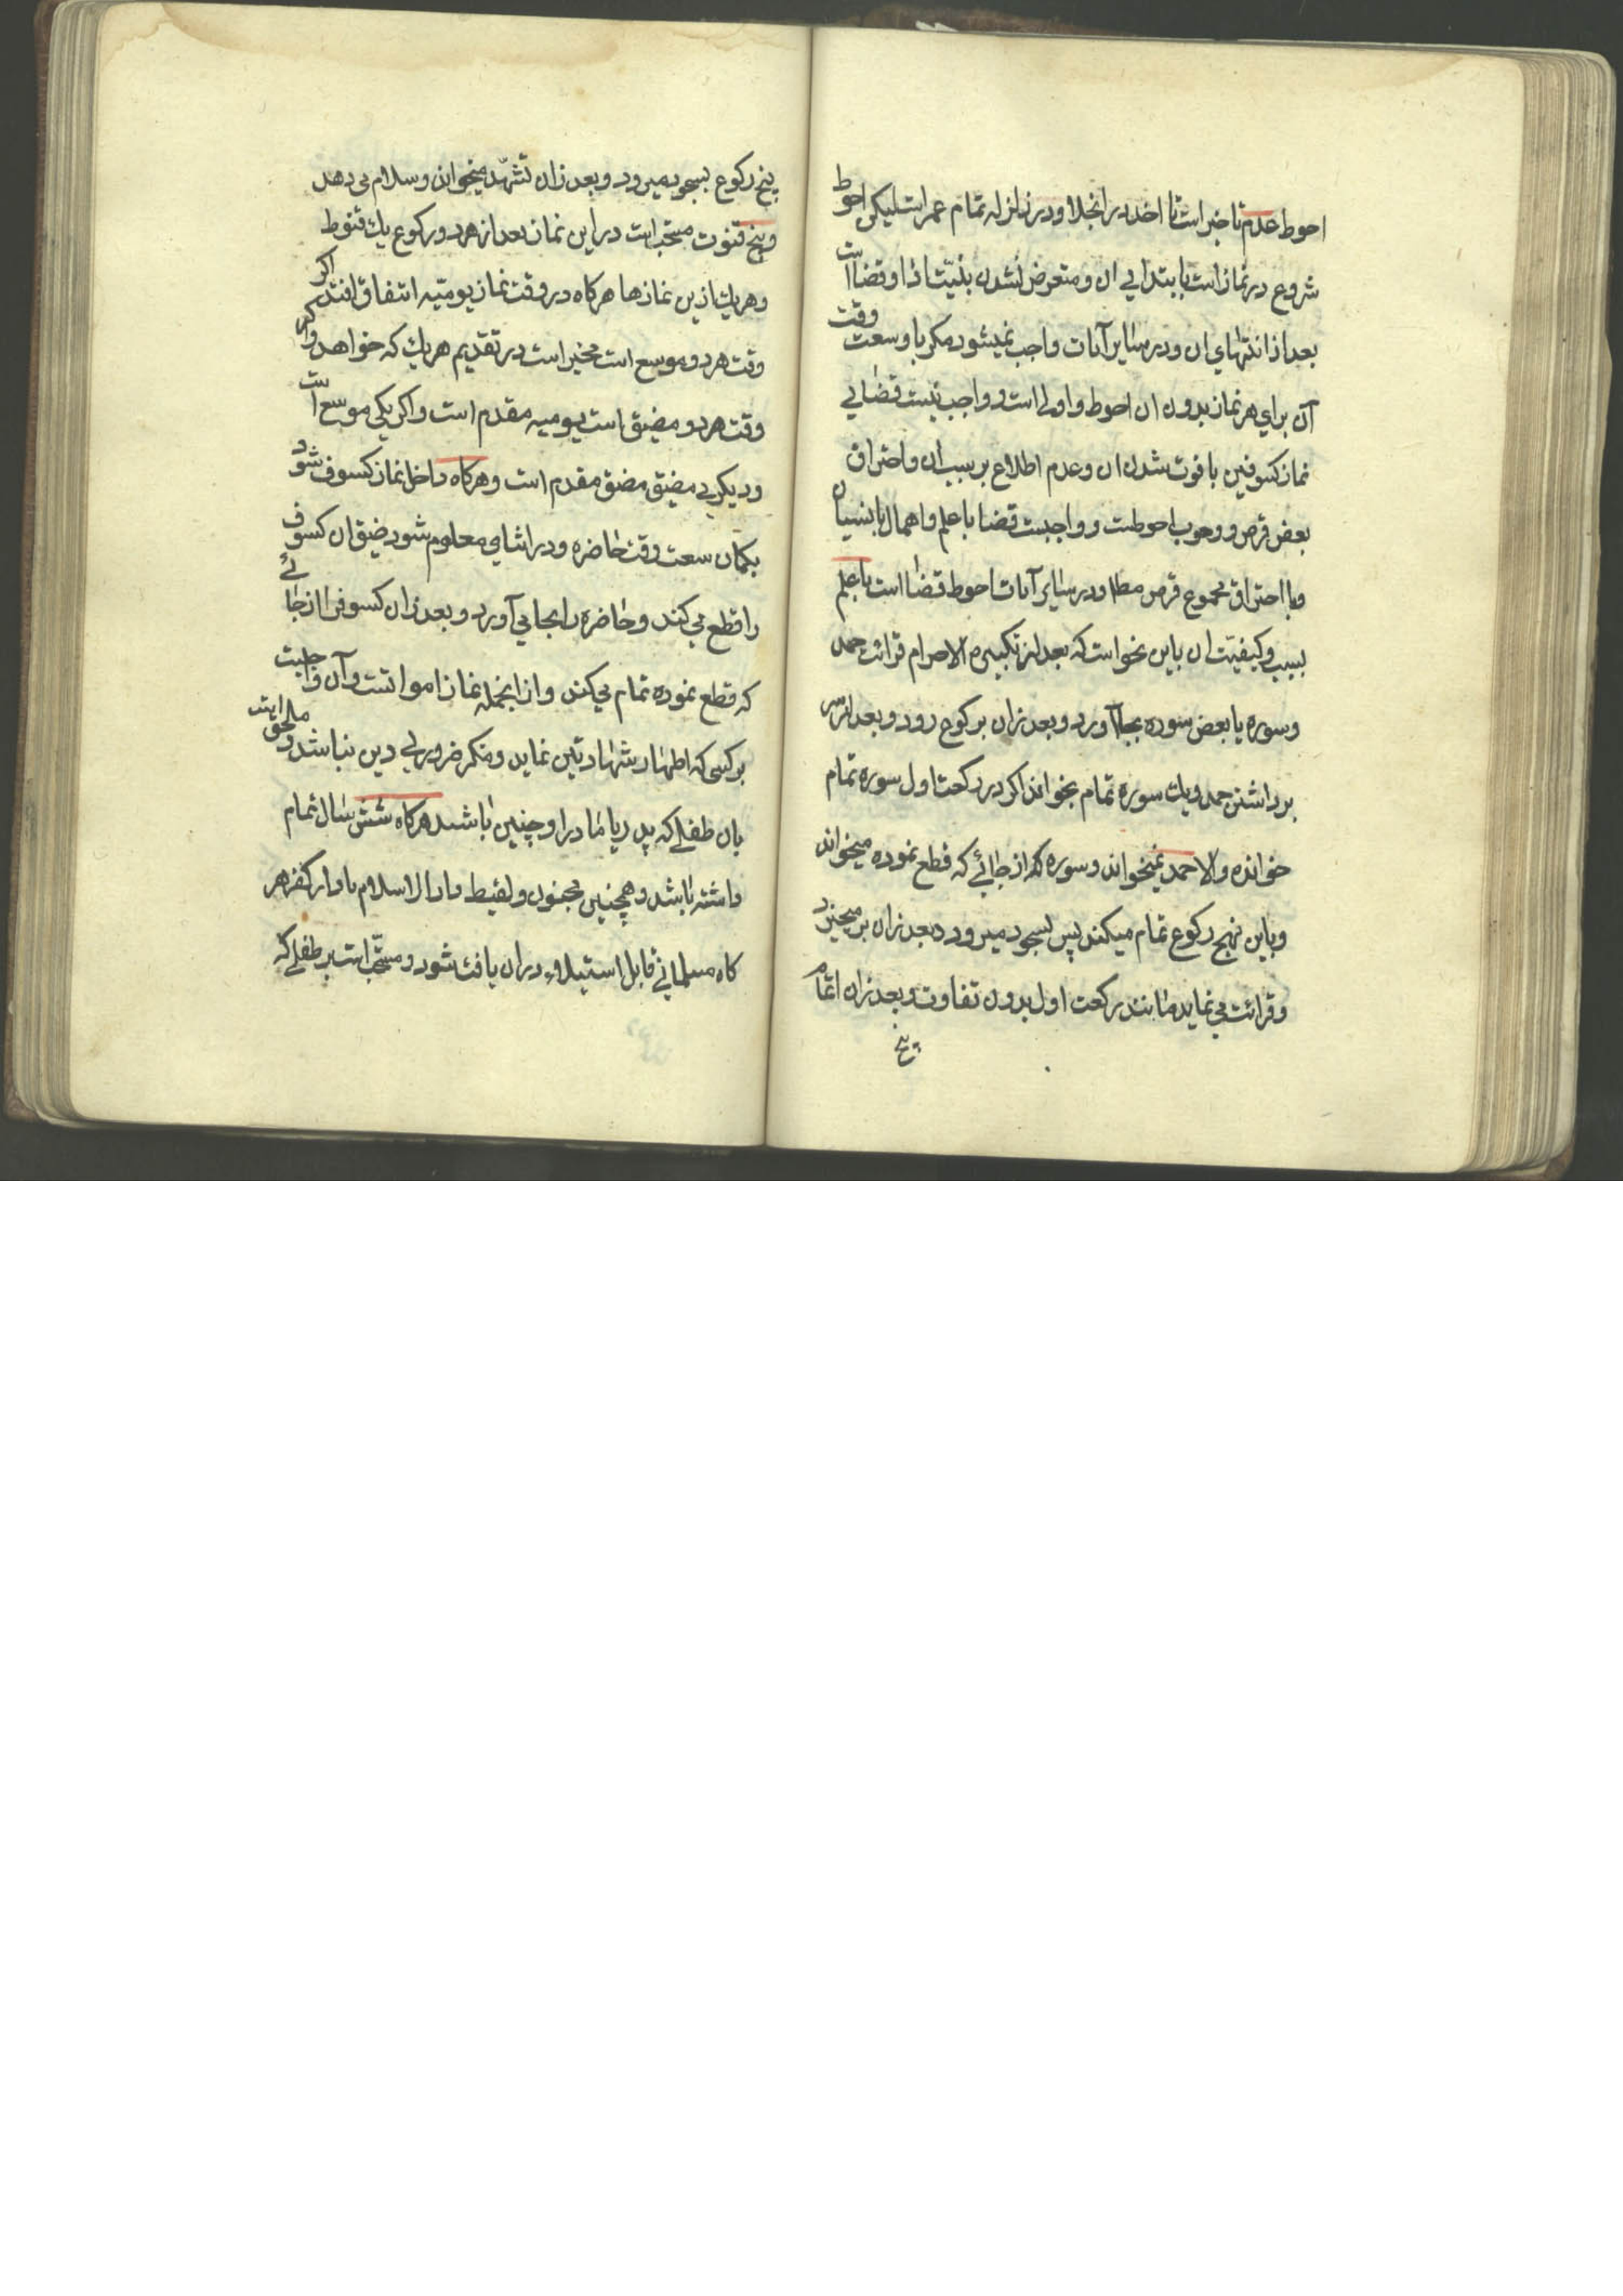 احوط عدم تاخیر است تا اخذ در انجلا و در زلزله تمام عمر است لیکن احوط
شروع در نماز است با ابتدایی ان و متعرض نشدن بنیت ادا و قضا است
بعد از انتهای ان و در سایر آیات واجب نمیشود مکر با وسعت وقت
آن برای هر نماز بدون ان احوط و اولی است و واجب نیست قضایی
نماز کسوفین با فوت شدن ان و عدم اطلاع بر سبب ان و احتراق
بعض قرص و وجوب احوطست و واجبست قضا با علم و اهمال یا نسیان
و با احتراق مجموع قرص مطلا و در سایر آیات احوط قضا است با علم
بسبب و کیفیت ان باین نحو است که بعد از تکبیرة الاحرام قرائت حمد
و سوره یا بعض سوره بجا آورد و بعد زان برکوع رود و بعد از سر
برداشتن حمد و یك سوره تمام بخواند اکر در رکعت اول سوره تمام
خوانده والا حمد نمیخواند و سوره را از جائے که قطع نموده میخواند
و باین نهج رکوع تمام میکند پس بسجود میرود و بعد زان بر میخیزد
و قرائت می نماید مانند رکعت اول بدون تفاوت و بعد زان اتمام
پنج
پنج رکوع بسجود میرود و بعد زان تشهّد میخواند و سلام می دهد
و پنج قنوت مستحب است در این نماز بعد از هر دو رکوع یك قنوط
و هر یك ازین نمازها هرکاه در وقت نماز یومیّه اتفاق افتد اکر
وقت هر دو موسع است مخیر است در تقدیم هر یك که خواهد و اکر
وقت هر دو مضیق است یومیه مقدم است و اکر یکی موسع است
و دیکری مضیق مضق مقدم است و هرکاه داخل نماز کسوف شود
بکمان سعت وقت حاضره و در اثنای معلوم شود ضیق ان کسوف
را قطع می کند و حاضره را بجا می آورد و بعد زان کسوف را از جائے
که قطع نموده تمام می کند و از انجمله نماز امواتست و آن واجبست
بر کسی که اظهار شهادتین نماید و منکر ضروری دین نباشد و ملحق است
بان طفلے که پدر یا مادر او چنین باشد هرکاه شش سال تمام
داشته باشد و همچنین مجنون و لقیط دار الاسلام یا دار کفر هر
کاه مسلمانے قابل استیلاد در ان یافت شود و مستحّب است بر طفلے که